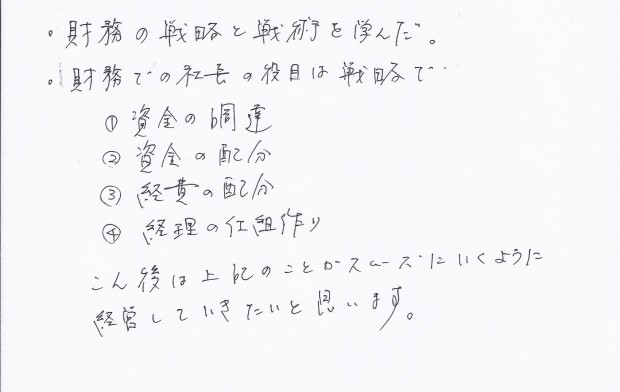 ・財務の戦略と戦術を学んだ。
・財務での社長の役目は戦略で‥
① 資金の調達
② 資金の配分
③ 経費の配分
④ 経理の仕組作り
こん後は上記のことがスムーズにいくように
経営していきたいと思います。